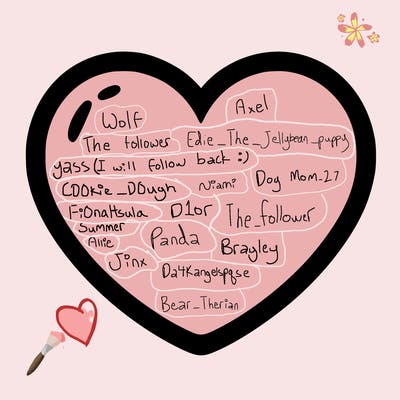 Wolf
Axel
The follower
Edie_The_Jellybean_puppy
yass (I will follow back :)
COOkie_DOugh
Niami
Dog Mom_27
FiOnaHsula
D1or
The_follower
Summer
Allie
Panda
Brayley
Jinx
Da4Kangelspqse
Bear_Therian